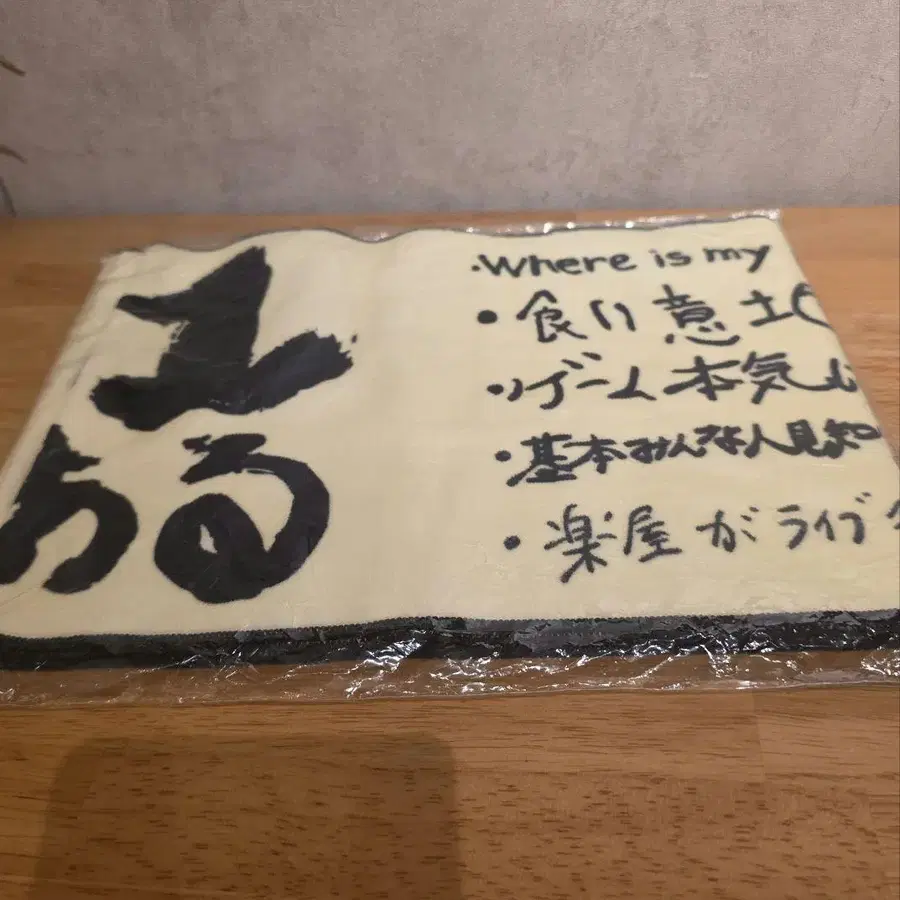 ある
・Where is my
・食い意地
・ゲーム本気
・基本みんな人見知
・楽屋がライブ